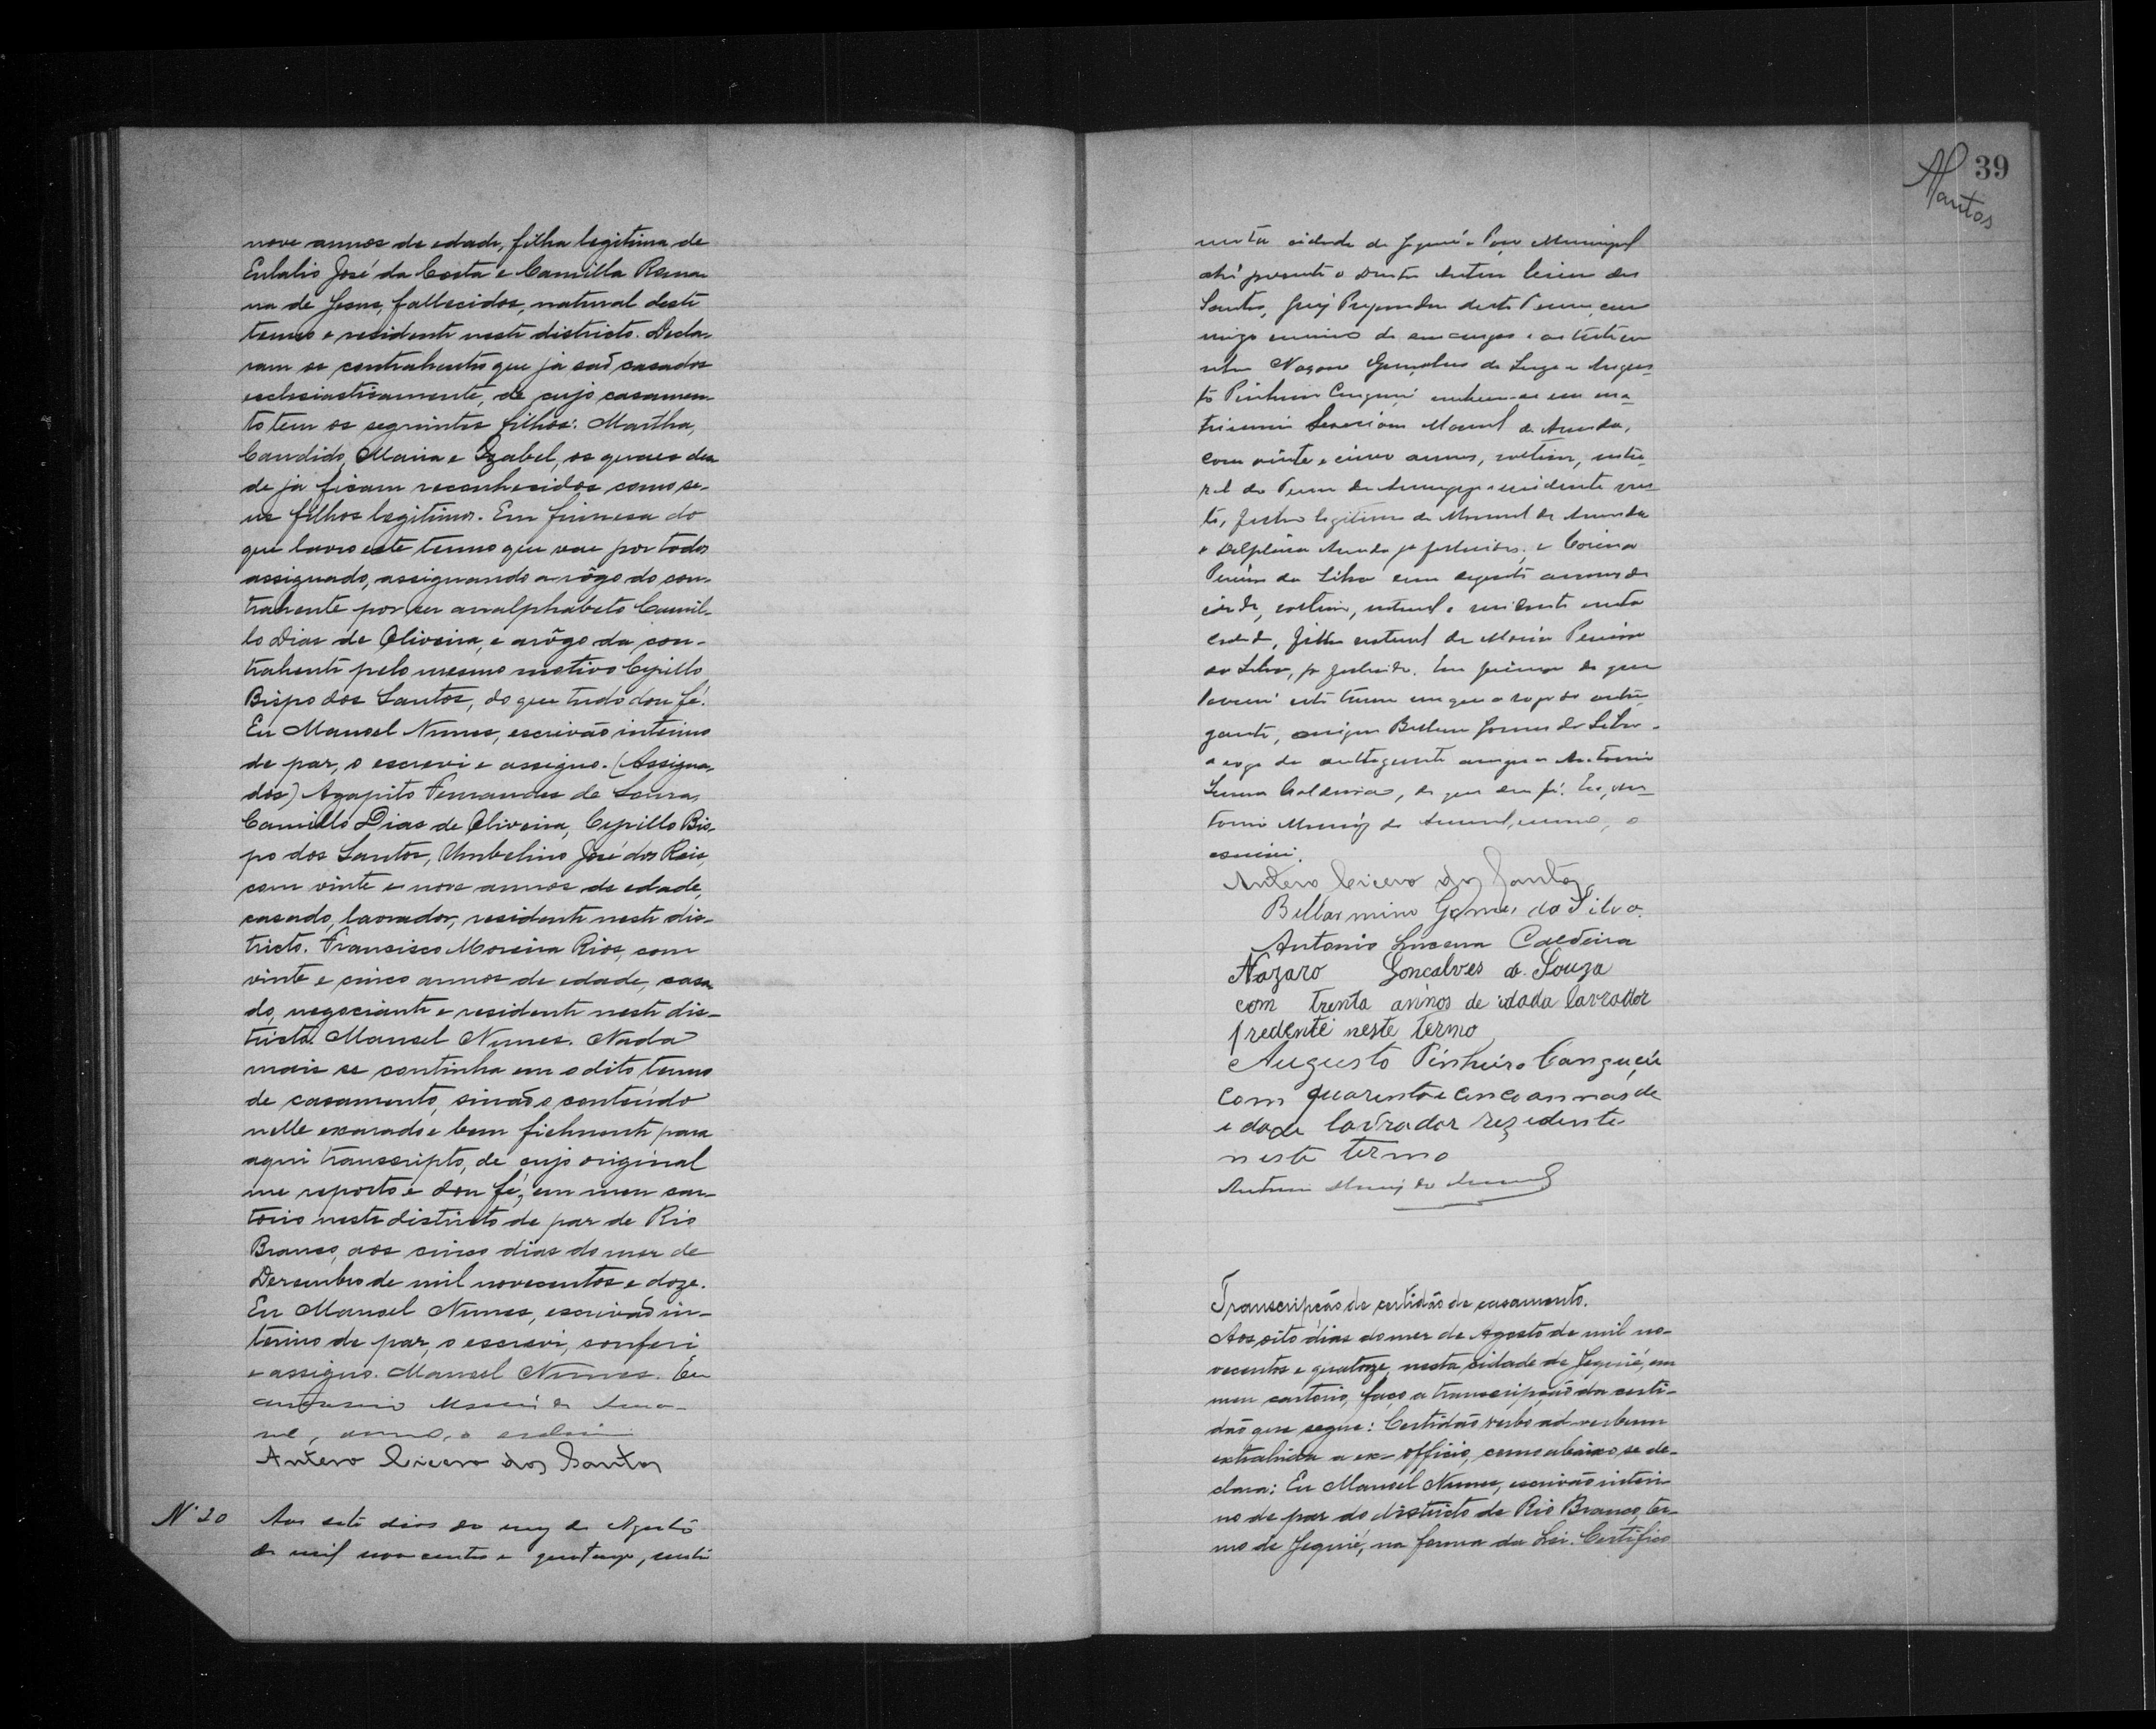 nove annos de edade, filha legitima de
Eulalio José da Costa e Camilla Roma-
na de Jesus, fallecidos, natural deste
termo e residente neste districto. Decla-
ram os contrahentes que já são casados
ecclesiasticamente, de cujo casamen-
to tem os seguintes filhos: Martha,
Candido, Maria e Izabel, os quaes des-
de já ficam reconhecidos como se-
us filhos legitimos. Em firmesa do
que lavro este termo que vae por todos
assignado, assignando a rôgo do con-
trahente por ser analphabeto Camil-
lo Dias de Oliveira, e a rôgo da con-
trahente pelo mesmo motivo Cyrillo
Bispo dos Santos, do que tudo dou fé.
Eu Manoel Nunes, escrivão interino
de paz, o escrevi e assigno. (Assigna-
dos) Agapito Fernandes de Souza,
Camillo Dias de Oliveira, Cyrillo Bis-
po dos Santos, Umbelino José dos Reis,
com vinte e nove annos de edade,
casado, lavrador, residente neste dis-
tricto. Francisco Moreira Rios, com
vinte e cinco annos de edade, casa-
do, negociante e residente neste dis-
tricto. Manoel Nunes. Nada
mais se continha em o dito termo
de casamento, sinão o conteúdo
nelle exarado e bem fielmente para
aqui transcripto, de cujo original
me reporto e dou fé, em meu car-
torio neste districto de paz de Rio
Branco, aos cinco dias do mez de
Dezembro de mil novecentos e doze.
Eu Manoel Nunes, escrivão in-
terino de paz, o escrevi, conferi
e assigno. Manoel Nunes. Eu
o escrevi
Antero Cicero dos Santos
N° 20 Aos sete dias do mez de Agosto
de mil nove centos e quatorze, nesta
39
Santos
cidade de Jequié e Paço Municipal
ahi presente o Doutor Antero Cicero dos
Santos, Juiz Preparador deste Termo, com-
migo escrivão de seu cargo e as testemu-
nhas Nazaro Gonçalves de Souza e Augus-
to Pinheiro Canguçú recebem-se em ma-
trimonio Manoel de
com vinte e cinco annos, solteiro, natu-
ral do Termo de e residente nes-
te, filho legitimo de Manoel de
e Delphina já fallecidos, e Corina
Pereira da Silva com desesete annos de
edade, solteira, natural e residente nesta
cidade, filha natural de Maria Pereira
da Silva, já fallecida. Em firmesa do que
lavrei este termo em que a rogo do outor-
gante, assigna Bellarmino Gomes da Silva
a rogo da outorgante assigna Antonio
Lucena Caldeira, do que dou fé. Eu, An-
tonio o
escrevi.
Antero Cicero dos Santos
Bellarmino Gomes da Silva
Antonio Lucena Caldeira
Nazaro Goncalves de Souza
com trenta annos de idada lavrador
neste termo
Augusto Pinheiro Canguçú
com quarenta e cinco annos de
edade lavrador rezidente
neste termo
Antonio
Transcripção de certidão de casamento.
Aos oito dias do mez de Agosto de mil no-
vecentos e quatorze, nesta cidade de Jequié, em
meu cartorio, faço a transcripção da certi-
dão que segue: Certidão verbo ad verbum
extrahida a ex-officio, como abaixo se de-
clara: Eu Manoel Nunes, escrivão interi-
no de paz do districto de Rio Branco, ter-
mo de Jequié, na forma da Lei. Certifico